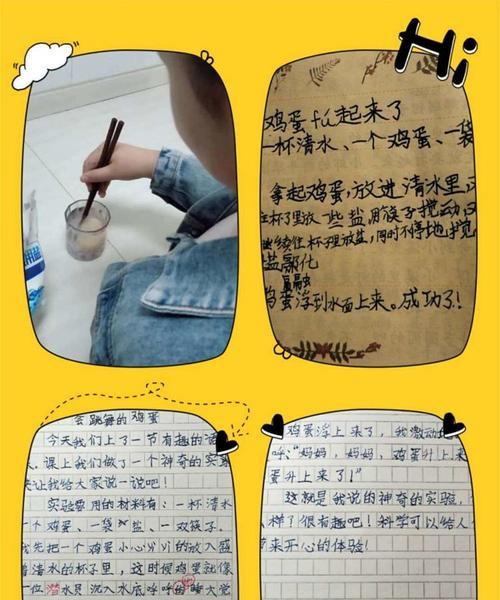 Hi
鸡蛋fú起来了
一杯清水、一个鸡蛋、一袋
拿起鸡蛋,放进清水里
杯子里放一些盐,用筷子搅动,
继续往杯子里放盐,同时不停地搅
盐融化
融
鸡蛋浮到水面上来。成功了!
会跳舞的鸡蛋
今天我们上了一节有趣的
课。课上我们做了一个神奇的实
让我给大家说一说吧!
实验要用的材料有:一杯清水
一个鸡蛋、一袋盐、一双筷子。
我先把一个鸡蛋小心yì yì的放入盛
着清水的杯子里,这时候鸡蛋就像
一位潜水员沉入水底呼呼的睡大觉
鸡蛋浮上来了,我激动
呼:"妈妈,妈妈,鸡蛋升上来
蛋升上来了!"
这就是我说的神奇的实验,
样了很有趣吧!科学可以给人
来开心的体验!